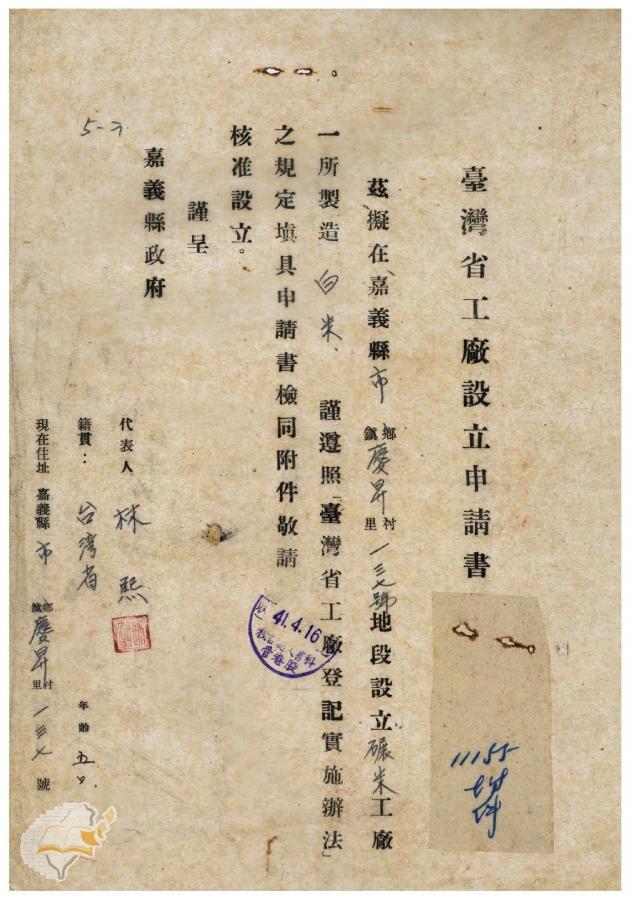 臺灣省工廠設立申請書
茲擬在嘉義縣市鄉鎮慶昇村里一三七號地段設立碾米工廠
一所製造白米、謹遵照「臺灣省工廠登記實施辦法」
之規定填具申請書檢同附件敬請
核准設立。
謹呈
嘉義縣政府
代表人 林熙
籍貫：台灣省 年齡五
現在住址 嘉義縣市鄉鎮慶昇村里一三七號
11155
附件
41.4.16
管卷股